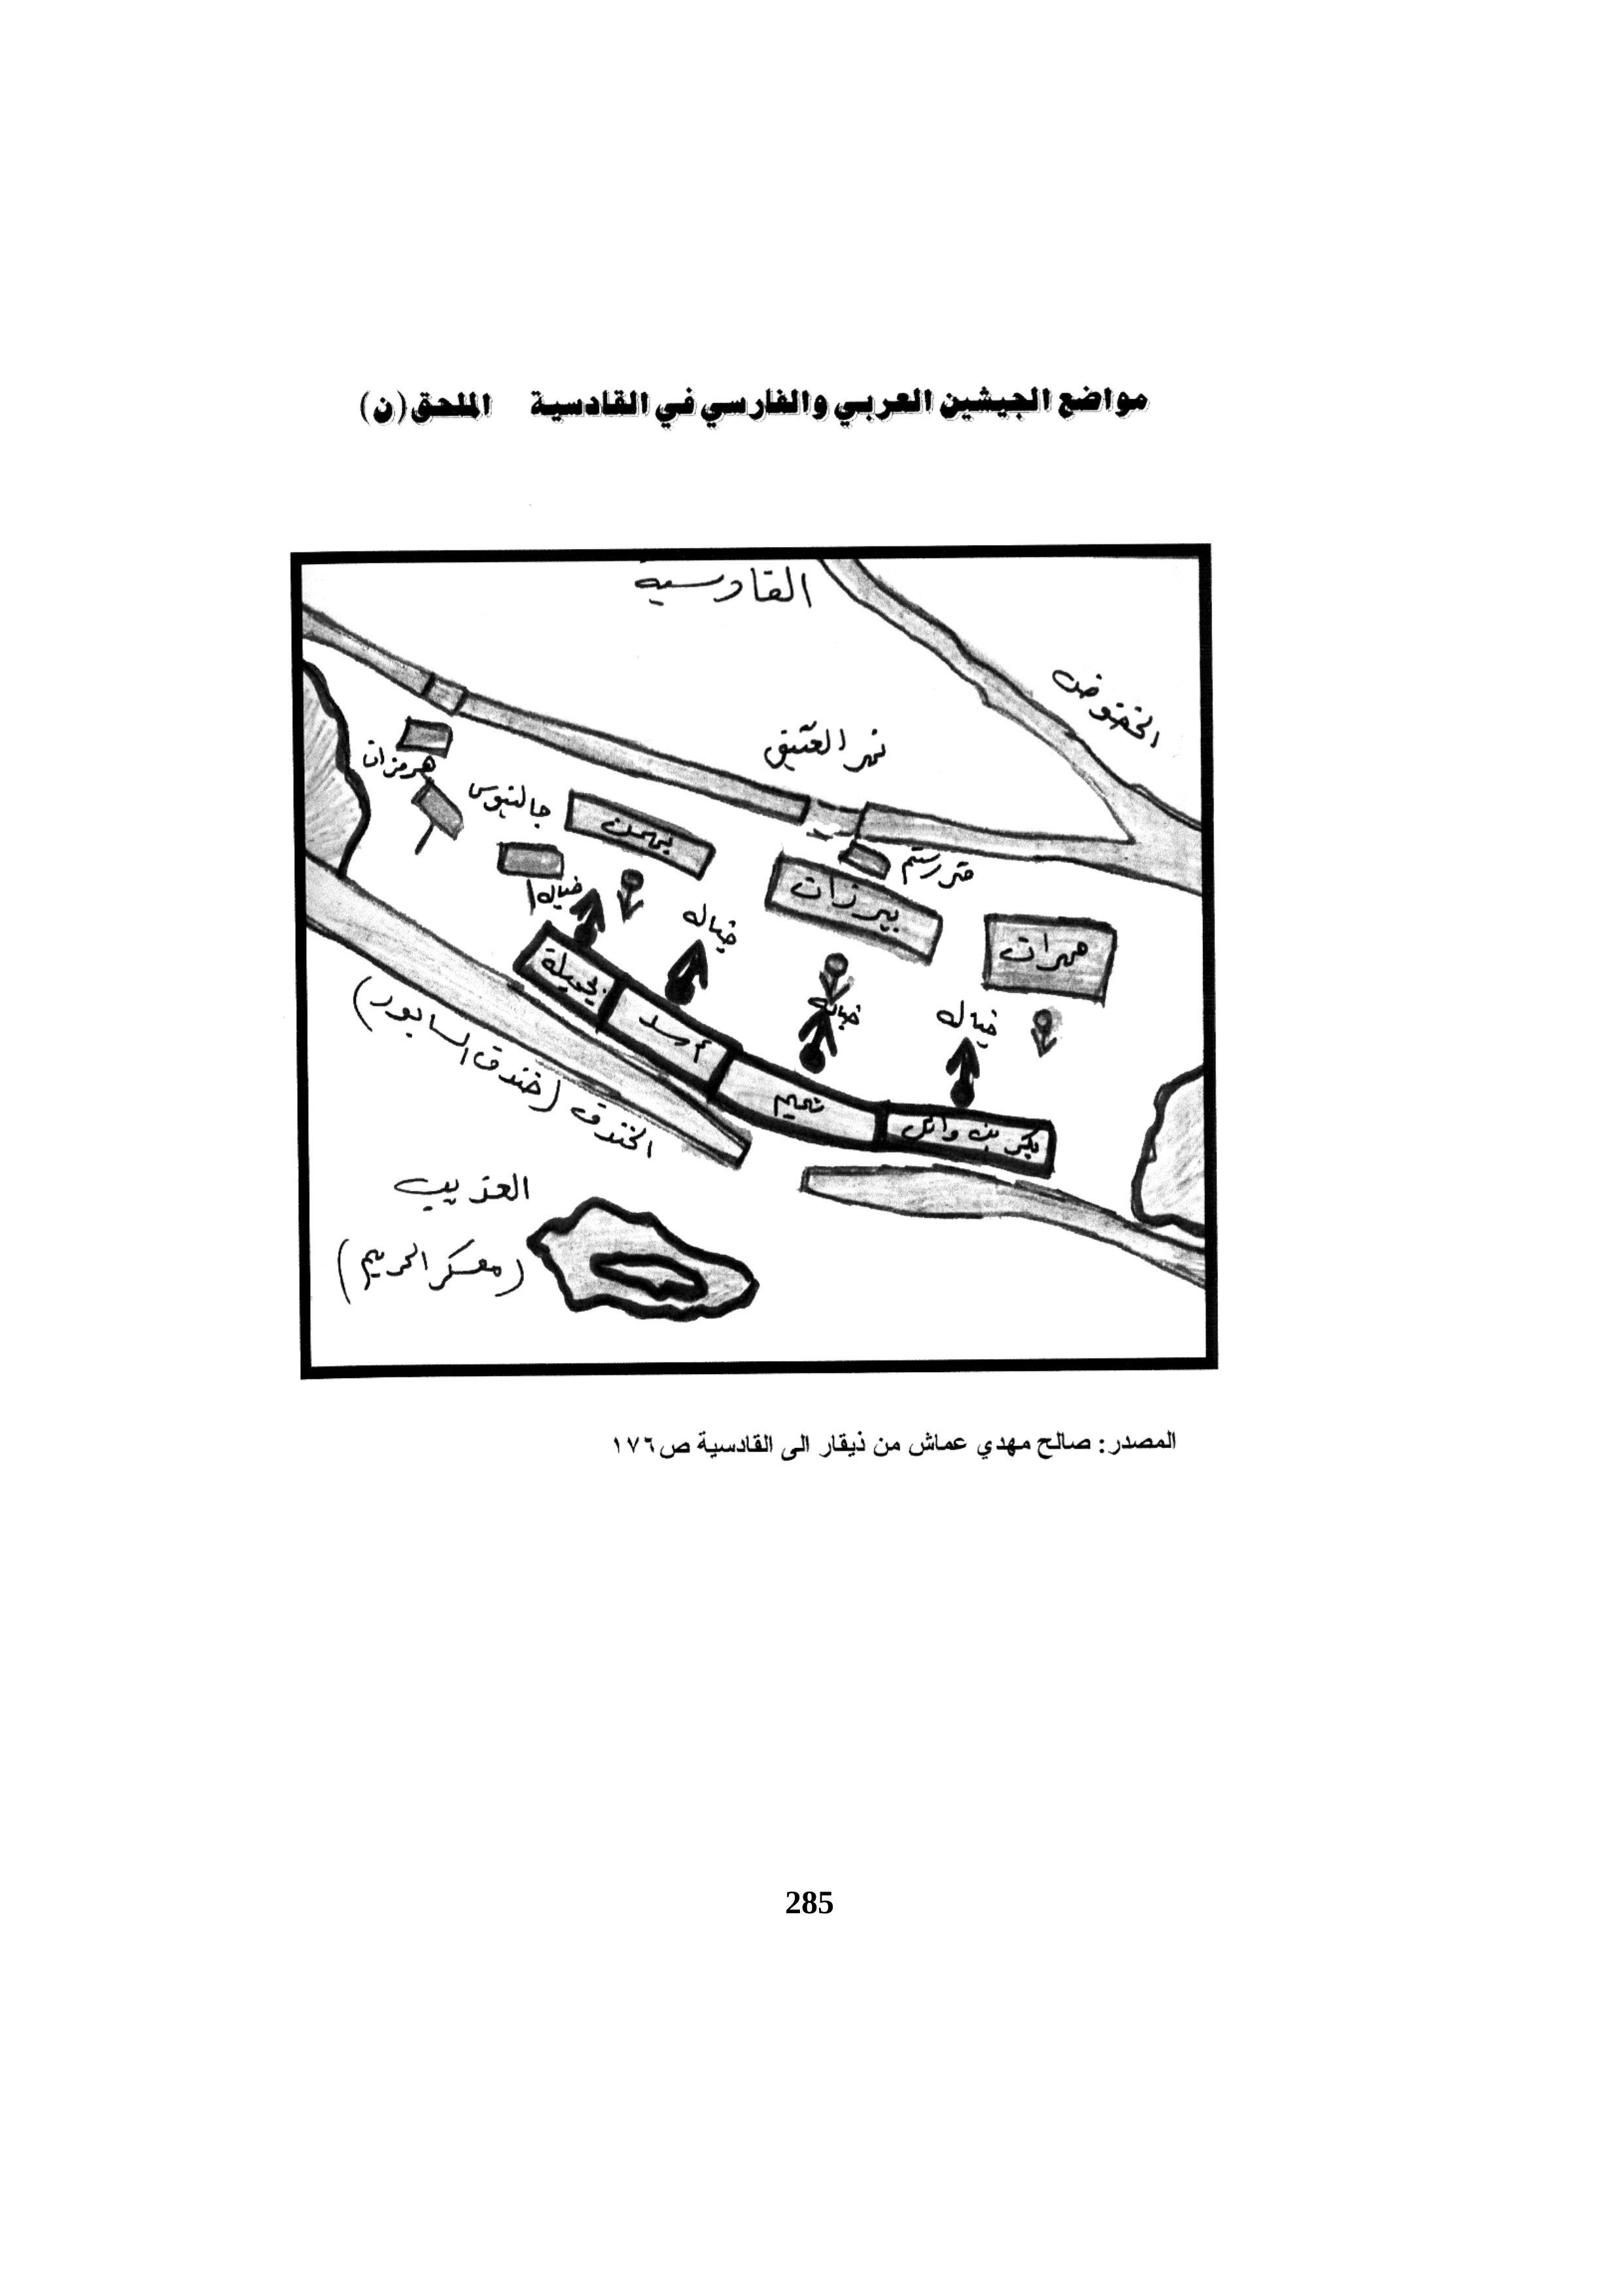 مواضع الجيشين العربي والفارسي في القادسية الملحق (ن)
القادسية
الخضوض
نهر العتيق
هرمزان
جالنيوس
بهمن
مقر رستم
بيرزان
مهران
خياله
خياله
خياله
خياله
بجيلة
أسد
تميم
بكر بن وائل
الخندق (خندق السابور)
العذيب
(معسكر الحريم)
المصدر: صالح مهدي عماش من ذيقار الى القادسية ص١٧٦
285